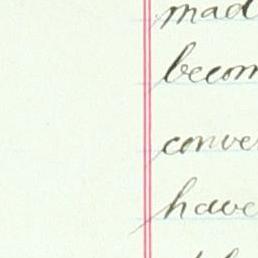 mad
becom
conve
have